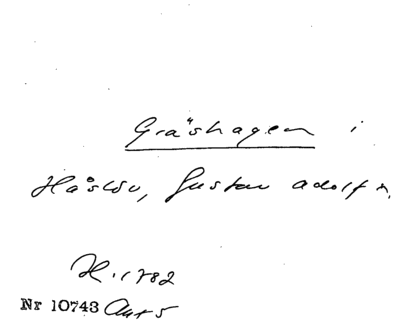 Gräshagen i
Håslöv, Gustav Adolf s.
H. 1782
Nr 10743 Akt 5